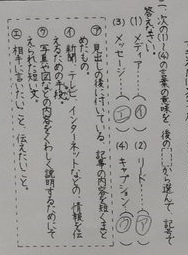 次の(1)〜(4)の言葉の意味を後の から選んで、記号で
答えなさい。
(1) メディア……(イ) (2) リード……(ア)
(3) メッセージ……(エ) (4) キャプション(ウ)
㋐ 見出しの後に付いている、記事の内容を短くまと
めたもの。
㋑ 新聞、テレビ、インターネットなどの、情報を伝
えるための手段。
㋒ 写真や図などの内容をくわしく説明するためにそ
えられた短い文。
㋓ 相手に言いたいこと、伝えたいこと。